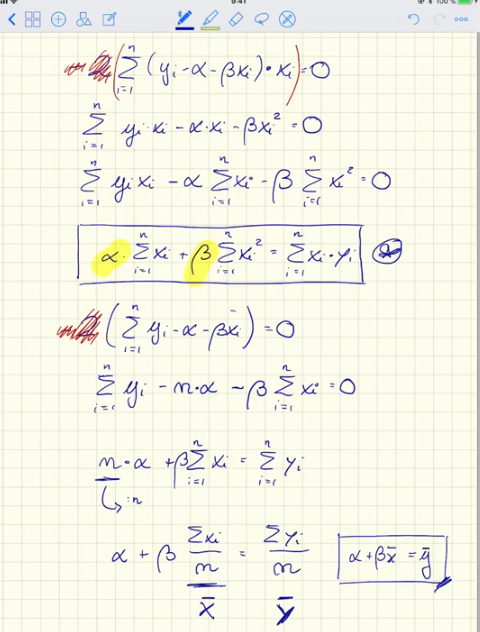 9:41 100 %
(∑_{i=1}^{n} (yᵢ - α - βxᵢ)·xᵢ) = 0
∑_{i=1}^{n} yᵢ·xᵢ - α·xᵢ - βxᵢ² = 0
∑_{i=1}^{n} yᵢxᵢ - α ∑_{i=1}^{n} xᵢ - β ∑_{i=1}^{n} xᵢ² = 0
α·∑_{i=1}^{n} xᵢ + β ∑_{i=1}^{n} xᵢ² = ∑_{i=1}^{n} xᵢ·yᵢ
(∑_{i=1}^{n} yᵢ - α - βxᵢ) = 0
∑_{i=1}^{n} yᵢ - n·α - β ∑_{i=1}^{n} xᵢ = 0
n·α + β ∑_{i=1}^{n} xᵢ = ∑_{i=1}^{n} yᵢ
:n
α + β ∑xᵢ/n = ∑yᵢ/n α + βx̄ = ȳ
x̄ ȳ